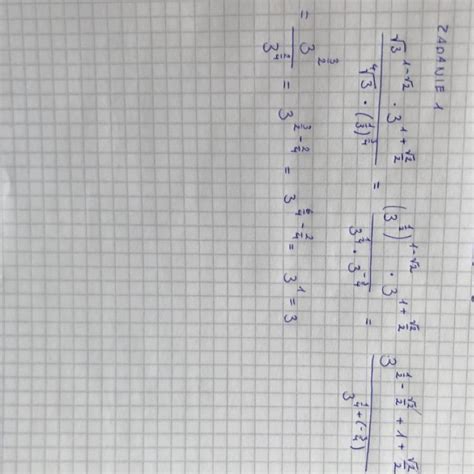 ZADANIE 1
√3^(1-√2) · 3^(1+√2/2) / (⁴√3 · (1/3)^(3/4)) = (3^(1/2))^(1-√2) · 3^(1+√2/2) / (3^(1/4) · 3^(-3/4)) = 3^(1/2 - √2/2 + 1 + √2/2) / 3^(1/4 + (-3/4))
= 3^(3/2) / 3^(2/4) = 3^(3/2 - 2/4) = 3^(6/4 - 2/4) = 3^1 = 3